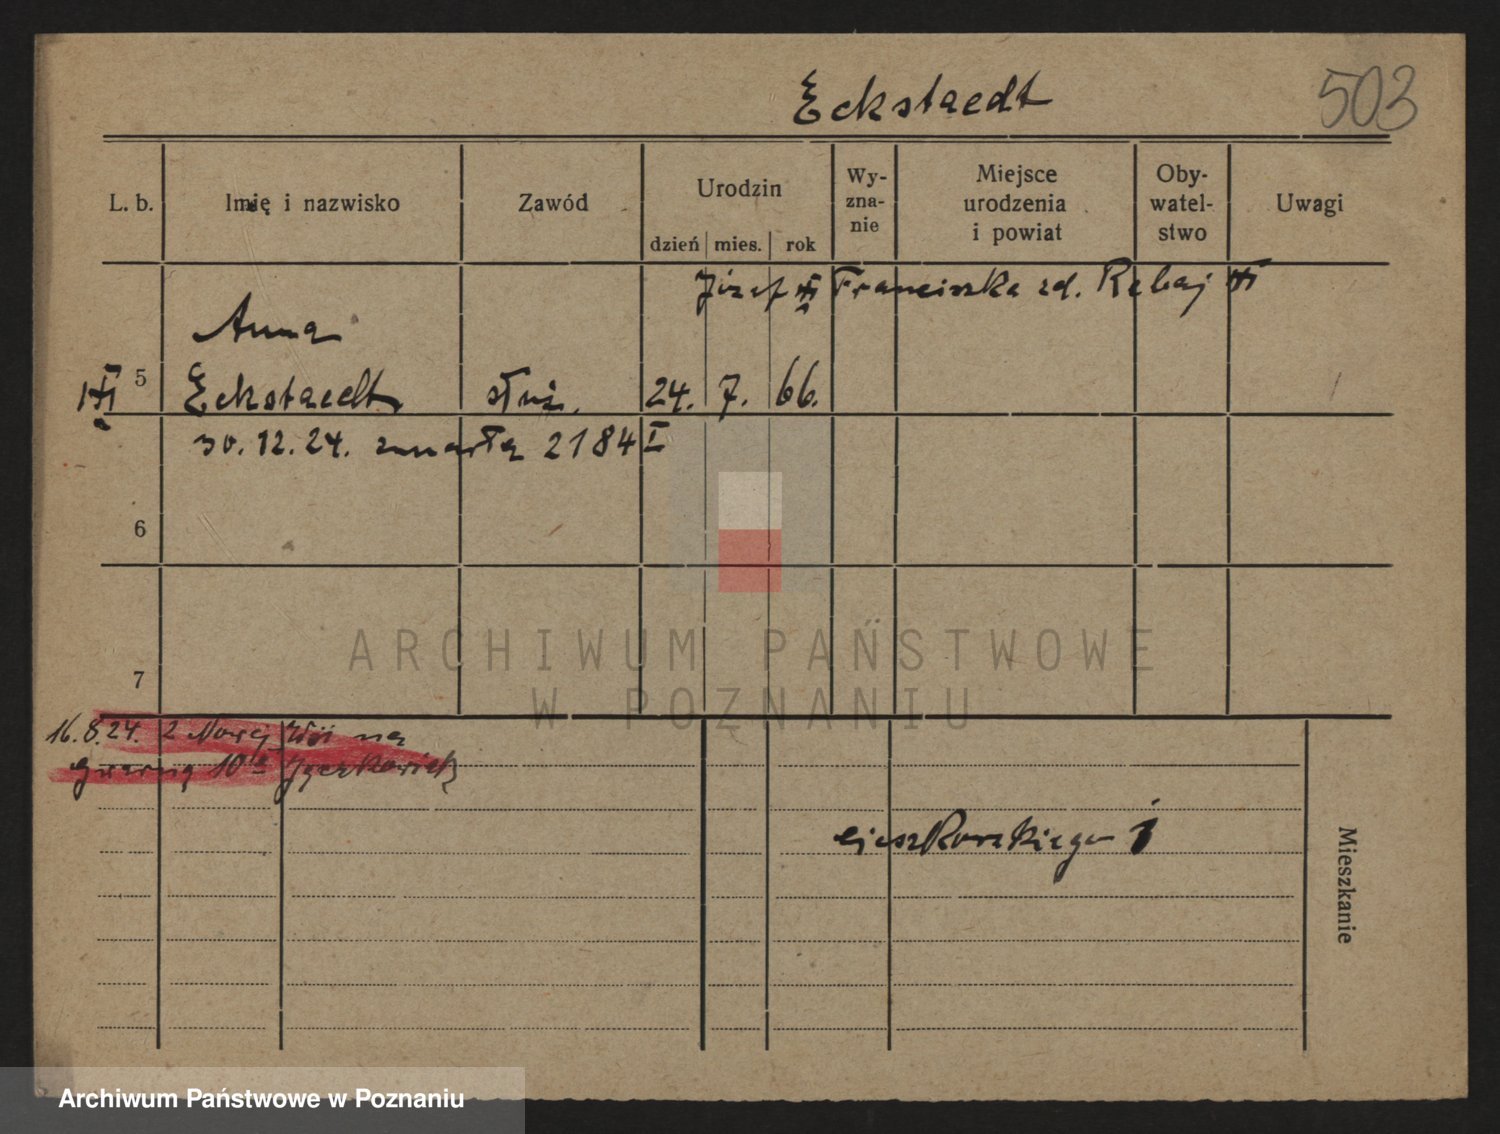 Eckstaedt
503
L. b.
Imię i nazwisko
Zawód
Urodzin
dzień mies. rok
Wy-
zna-
nie
Miejsce
urodzenia
i powiat
Oby-
watel-
stwo
Uwagi
Józef Franciszka zd. Rebaj
Anna
5 Eckstaedt służ. 24. 7. 66.
30. 12. 24. zmarła 2184 I
6
7
ARCHIWUM PAŃSTWOWE
W POZNANIU
16. 8. 24. 2 Nowej na
Gwarną 10a
Cieszkowskiego 1
Mieszkanie
Archiwum Państwowe w Poznaniu